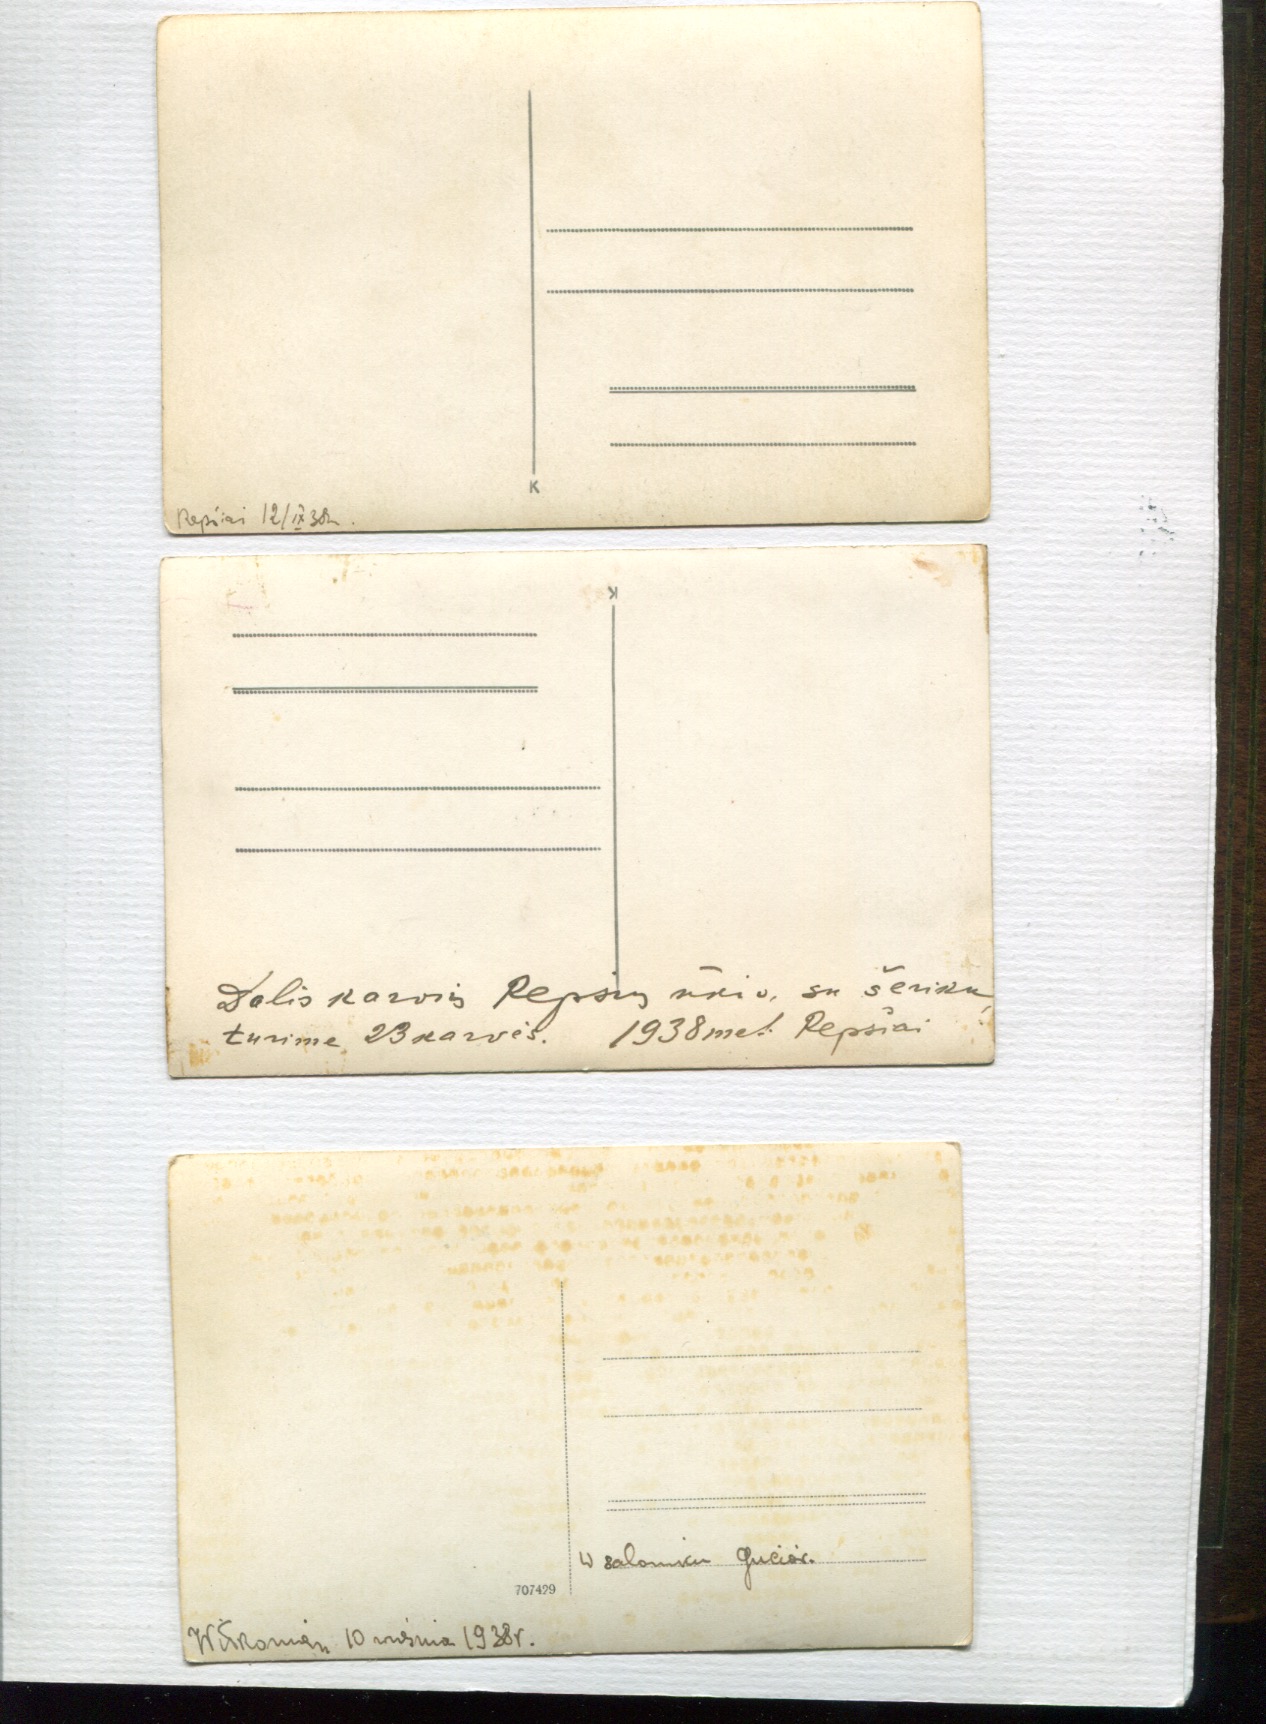 K
Repšiai 12/IX 38r.
K
Dalis karvių Repšių ūkio, su šėriku,
turime 23 karvės. 1938 met. Repšiai
W saloniku Guciów.
707429
10 wrśnia 1938r.